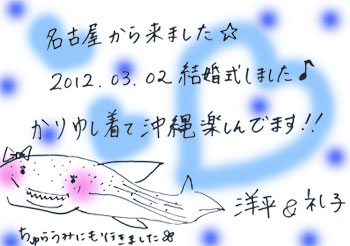 名古屋から来ました☆
2012.03.02 結婚式しました♪
かりゆし着て沖縄楽しんでます!!
洋平&礼子
ちゅらうみにも行きました